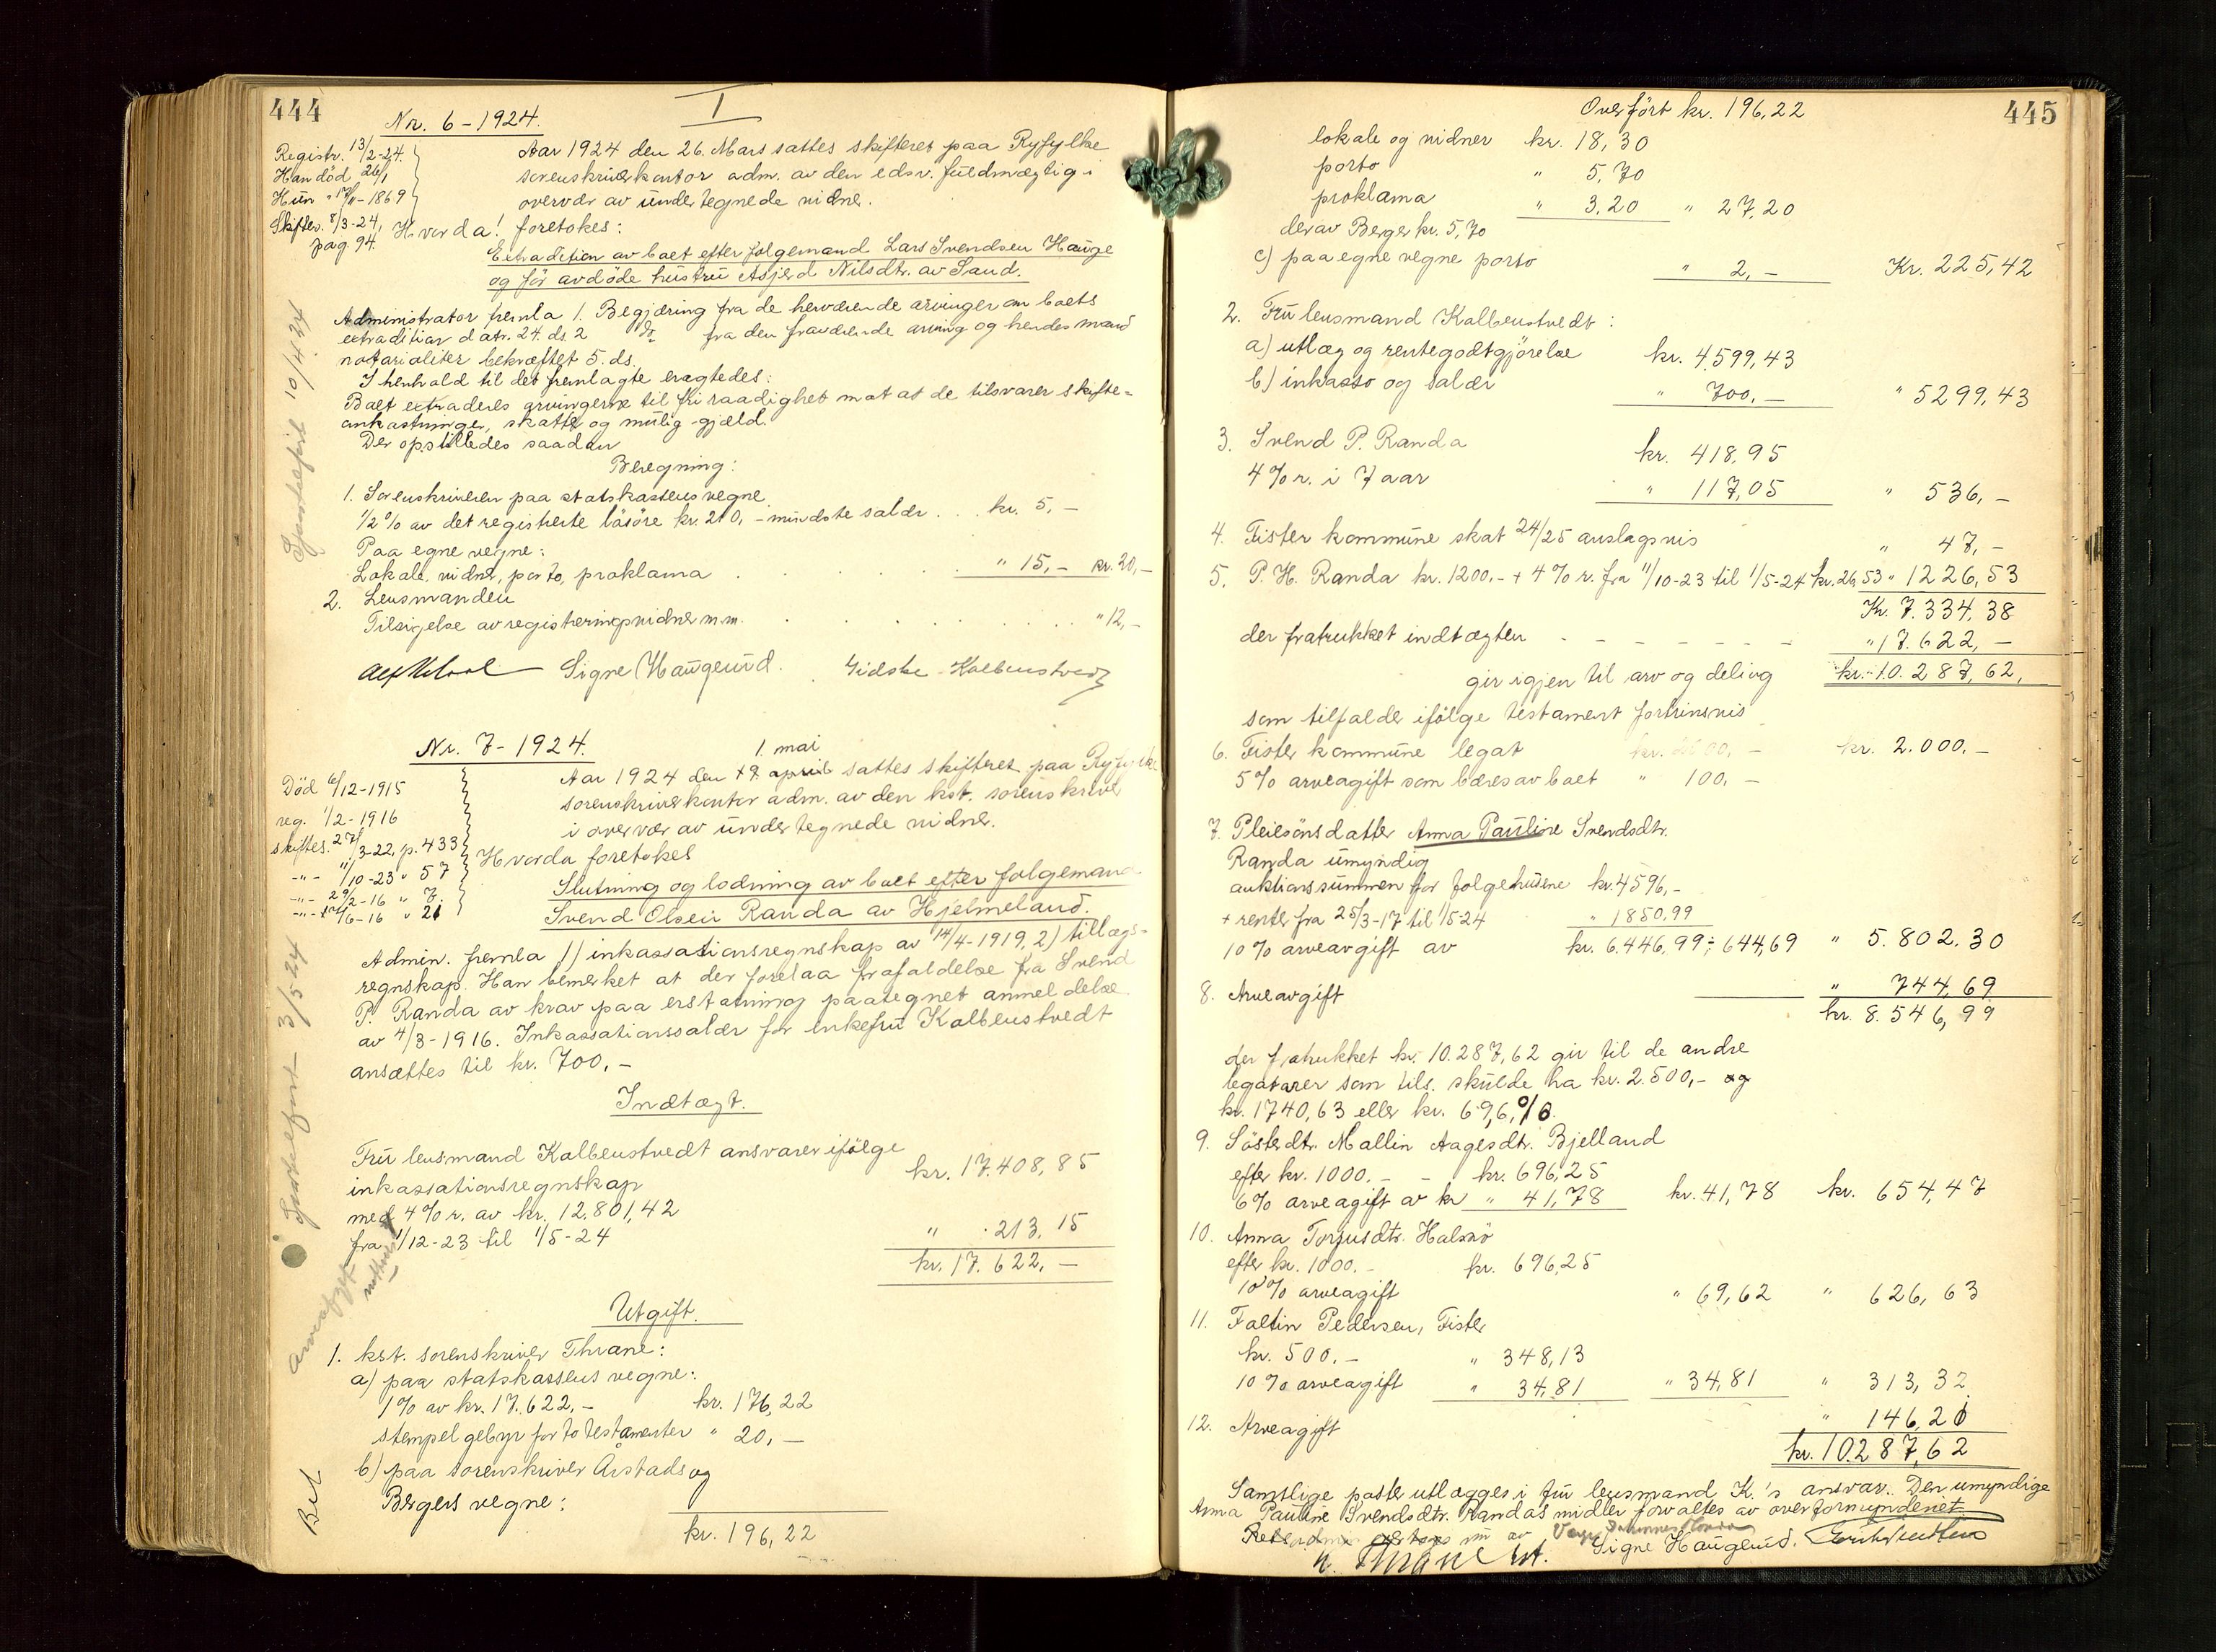 444
I
Nr. 6 - 1924.
Registr. 13/2-24.
Han död 26/1
Hun " 17/11-1869
Skifter. 8/3-24,
pag. 94.
Aar 1924 den 26. Mars sattes skifteret paa Ryfylke
sorenskriverkontor adm. av den edsv. fuldmægtig i
overvær av undertegnede vidner.
Hvorda! foretokes:
Extradition av boet efter folgemand Lars Svendsen Hauge
og før avdöde hustru Asjerd Nilsdtr. av Sand.
Administrator fremla 1. Begjæring fra de herværende arvinger om boets
extradition datr. 24. ds. 2 do fra den fraværende arving og hendes mand
notarialiter bekræftet 5. ds.
I henhold til det fremlagte eragtedes:
Boet extraderes arvingerne til fri raadighet mot at de tilsvarer skifte-
omkostninger, skatte og mulig gjæld.
Der opstilledes saadan
Beregning:
1. Sorenskriveren paa statskassens vegne
1/2 % av det registrerte lösöre kr. 210,- mindste salær . . . kr. 5,-
Paa egne vegne:
Lokale, vidner, porto, proklama . . . . " 15,- kr. 20,-
2. Lensmanden
Tilsigelse av registreringsvidner m.m. . . . . . " 12,-
Signe Haugeund. Gidske Kolbenstvedt
Gjenstefört 10/4 24
Nr. 7 - 1924.
1. mai
Död 6/12-1915
reg. 1/2-1916
skiftes. 27/3-22, p. 433
-"- 11/10-23 " 57
-"- 29/2-16 " 7.
-"- 17/6-16 " 21
Aar 1924 den 29. april sattes skifteret paa Ryfylke
sorenskriverkontor adm. av den kst. sorenskriver
i overvær av undertegnede vidner.
Hvorda foretokes
Slutning og lodning av boet efter folgemand
Svend Olsen Randa av Hjelmeland.
Admin. fremla 1) inkassationsregnskap av 14/4-1919, 2) tillægs-
regnskap. Han bemerket at der forelaa frafaldelse fra Svend
P. Randa av krav paa erstatning paategnet anmeldelse
av 4/3-1916. Inkassationssalær for enkefru Kolbenstvedt
ansættes til kr. 700,-
Indtægt.
Fru lensmand Kolbenstvedt ansvarer ifölge
inkassationsregnskap kr. 17.408,85
med 4% r. av kr. 12.801,42
fra 1/12-23 til 1/5-24 " 213,15
kr. 17.622,-
Utgift.
1. kst. sorenskriver Thrane:
a) paa statskassens vegne:
1% av kr. 17.622,- kr. 176,22
stempelgebyr for to testamenter " 20,-
b) paa sorenskriver Årstads og
Bergers vegne:
kr. 196,22
445
Overfört kr. 196,22
lokale og vidner kr. 18,30
porto " 5,70
proklama " 3,20 " 27,20
derav Berger kr. 5,70
c) paa egne vegne porto " 2,- Kr. 225,42
2. Fru lensmand Kolbenstvedt:
a) utlæg og rentegodtgjörelse kr. 4.599,43
b) inkasso og salær " 700,- " 5299,43
3. Svend P. Randa kr. 418,95
4% r. i 7 aar " 117,05 " 536,-
4. Fister kommune skat 24/25 anslagsvis " 47,-
5. P. H. Randa kr. 1200,- + 4% r. fra 11/10-23 til 1/5-24 kr. 26,53 " 1226,53
Kr. 7.334,38
der fratrukket indtægten - - - - - - " 17.622,-
gir igjen til arv og deling kr. 10.287,62,
som tilfalder ifölge testament fortrinsvis
6. Fister kommune legat kr. 2.000,-
5% arveagift som bæres av boet " 100,-
7. Pleiesönsdatter Anna Pauline Svendsdtr.
Randa umyndig
auktionssummen for folgehusene kr. 4596,-
+ renter fra 25/3-17 til 1/5-24 " 1850,99
10% arveavgift av kr. 6.446,99 ÷ 644,69 " 5.802.30
8. Arveavgift " 744,69
kr. 8.546,99
der fratrukket kr. 10.287,62 gir til de andre
legatarer som tils. skulde ha kr. 2.500,- og
kr. 1740,63 eller kr. 69,6,%.
9. Sösterdtr. Mallin Aagesdtr. Bjelland
efter kr. 1000.- - kr. 696,25
6% arveagift av kr " 41,78 kr. 41,78 kr. 654,47
10. Anna Torjusdtr. Halsnö
efter kr. 1000.- kr. 696,25
10% arveagift " 69,62 " 626,63
11. Faltin Pedersen, Fister
kr. 500.- " 348,13
10% arveagift " 34,81 " 34,81 " 313,32
12. Arveagift " 146,21
kr. 10287,62
Samtlige poster utlægges i fru lensmand K.'s ansvar. Den umyndige
Anna Pauline Svendsdtr. Randas midler forvaltes av overformynderiet
Signe Haugeund.
Thrane kst.